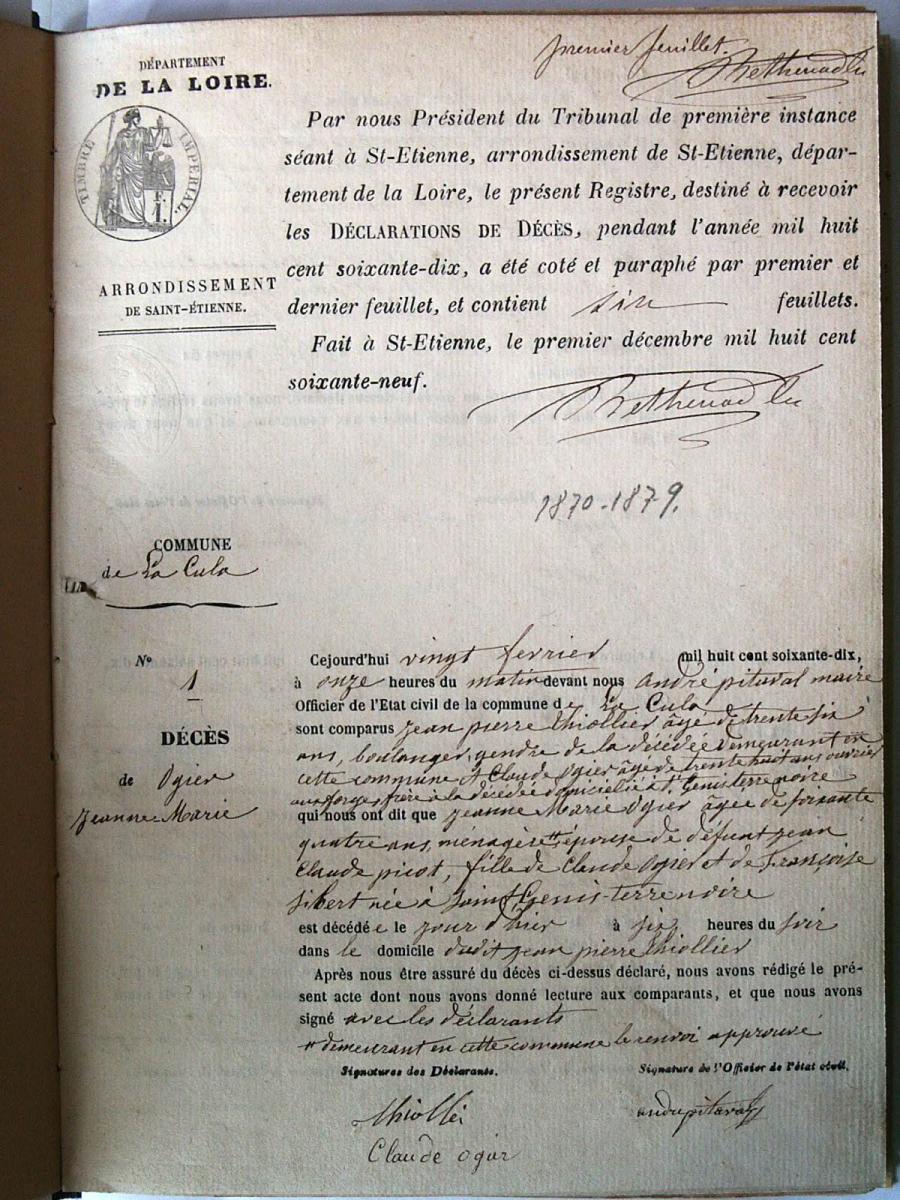 premier feuillet.
DÉPARTEMENT
DE LA LOIRE.
TIMBRE IMPÉRIAL.
Par nous Président du Tribunal de première instance
séant à St-Etienne, arrondissement de St-Etienne, dépar-
tement de la Loire, le présent Registre, destiné à recevoir
les DÉCLARATIONS DE DÉCÈS, pendant l'année mil huit
cent soixante-dix, a été coté et paraphé par premier et
dernier feuillet, et contient six feuillets.
Fait à St-Etienne, le premier décembre mil huit cent
soixante-neuf.
ARRONDISSEMENT
DE SAINT-ÉTIENNE.
1870-1879.
COMMUNE
de La Cula
No
1
DÉCÈS
de Ogier
Jeanne-Marie
Cejourd'hui vingt fevrier mil huit cent soixante-dix,
à onze heures du matin devant nous André pitaval maire
Officier de l'Etat civil de la commune de La Cula
sont comparus Jean pierre thiollier âgé de trente six
ans, boulanger, gendre de la décédée demeurant en
cette commune et Claude Ogier âgé de trente huit ans ouvrier
aux forges, frère à la décédée domicilié à St Genis terre noire
qui nous ont dit que Jeanne Marie Ogier âgée de soixante
quatre ans, ménagère # épouse de défunt jean
Claude picot, fille de Claude Ogier et de Françoise
sibert née à saint Genis-terrenoire
est décédée le jour d'hier à six heures du soir
dans le domicile dudit jean pierre thiollier
Après nous être assuré du décès ci-dessus déclaré, nous avons rédigé le pré-
sent acte dont nous avons donné lecture aux comparants, et que nous avons
signé avec les déclarants
# demeurant en cette commune le renvoi approuvé
Signatures des Déclarants.
Signature de l'Officier de l'état civil.
thiollié
andrépitaval
Claude ogier